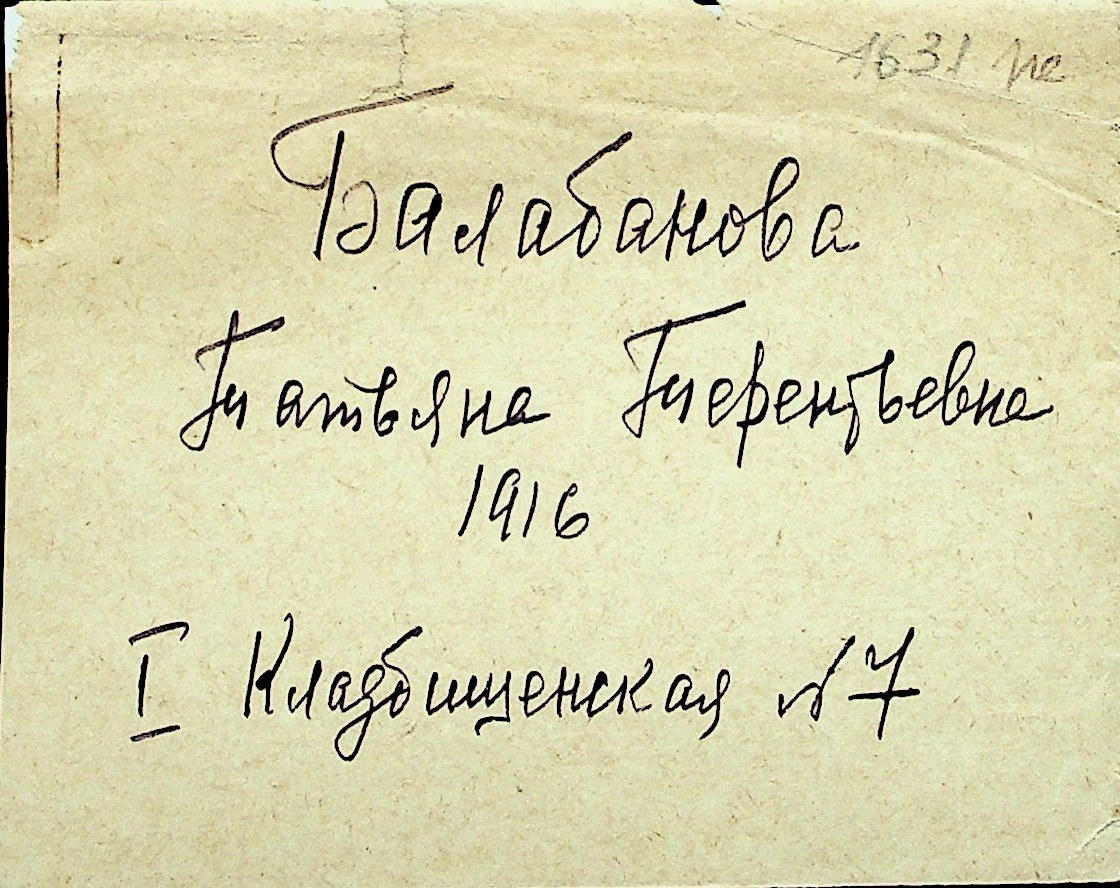 1631 не
Балабанова
Татьяна Терентьевна
1916
I Кладбищенская №7